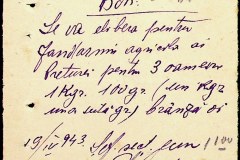 Bon.
Se va elibera pentru
jandarmii agricoli ai
Preturei pentru 3 oameni
1 Kgr. 100 gr. (un kgr
una sută gr) brânză oi
19/IV 943.